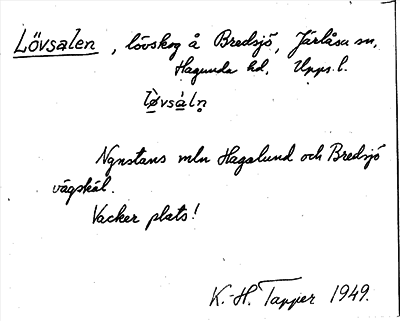 Lövsalen, lövskog å Bredsjö, Järlåsa sn,
Hagunda hd, Upps. l.
lø̀vsáln̥
Ngnstans mln Hagalund och Bredsjö
vägskäl.
Vacker plats!
K.-H. Tapper 1949.